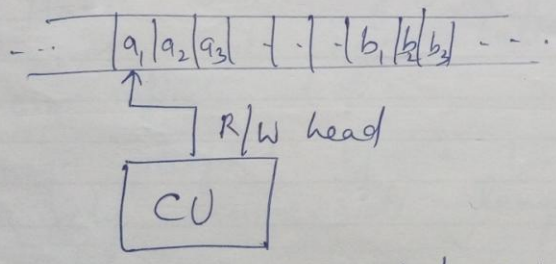 ... a₁ a₂ a₃ - · - b₁ b₂ b₃ ....
R/W head
CU